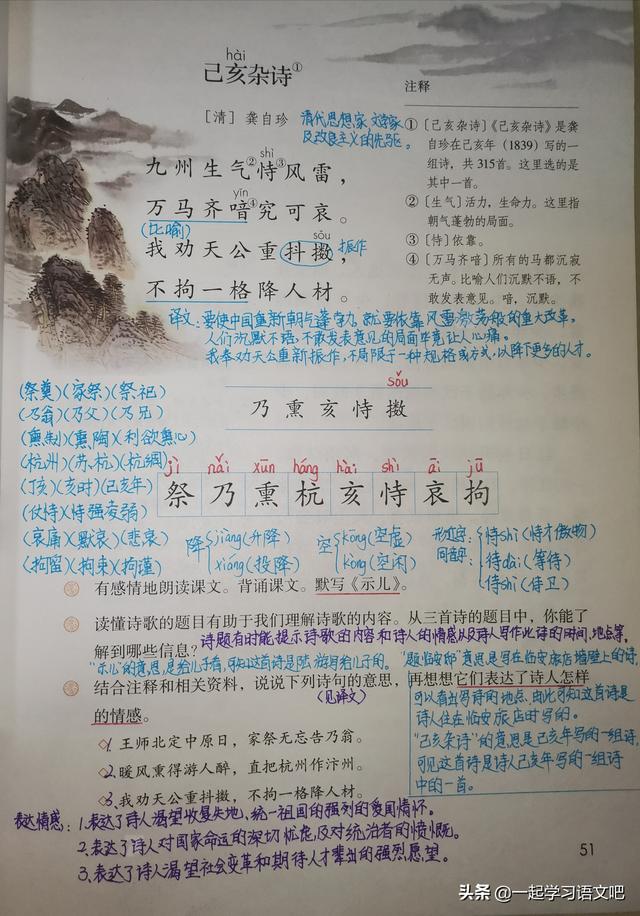 hài
己亥杂诗①
[清] 龚自珍
清代思想家、文学家
及改良主义的先驱。
shì
九州生气②恃③风雷，
yīn
万马齐喑④究可哀。
(比喻)
sǒu
我劝天公重抖擞， 振作
不拘一格降人材。
注释
①〔己亥杂诗〕《己亥杂诗》是龚
自珍在己亥年（1839）写的一
组诗，共 315首。这里选的是
其中一首。
②〔生气〕活力，生命力。这里指
朝气蓬勃的局面。
③〔恃〕依靠。
④〔万马齐喑〕所有的马都沉寂
无声。比喻人们沉默不语，不
敢发表意见。喑，沉默。
译文：要使中国重新朝气蓬勃，就要依靠风雷激荡般的重大改革。
人们沉默不语，不敢发表意见的局面毕竟让人心痛。
我奉劝天公重新振作，不局限于一种规格或方式，以降下更多的人才。
sǒu
乃 熏 亥 恃 擞
(祭奠)(家祭)(祭祀)
(乃翁)(乃父)(乃兄)
(熏制)(熏陶)(利欲熏心)
(杭州)(苏杭)(杭绸)
(丁亥)(亥时)(己亥年)
(仗恃)(恃强凌弱)
(哀痛)(默哀)(悲哀)
(拘留)(拘束)(拘谨)
jì nǎi xūn háng hài shì āi jū
祭 乃 熏 杭 亥 恃 哀 拘
降 jiàng(升降)
xiáng(投降)
空 kōng(空虚)
kòng(空闲)
形近字 同音字
恃shì(恃才傲物)
待dài(等待)
侍shì(侍卫)
有感情地朗读课文。背诵课文。默写《示儿》。
读懂诗歌的题目有助于我们理解诗歌的内容。从三首诗的题目中，你能了
解到哪些信息？
诗题有时能提示诗歌的内容和诗人的情感以及诗人写作此诗的时间、地点等，
“示儿”的意思是给儿子看，可知这首诗是陆游写给儿子的。
“题临安邸”意思是写在临安旅店墙壁上的诗，
可以看出写诗的地点，由此可知这首诗是
诗人住在临安旅店时写的。
“己亥杂诗”的意思是己亥年写的一组诗，
可见这首诗是诗人己亥年写的一组诗
中的一首。
结合注释和相关资料，说说下列诗句的意思，再想想它们表达了诗人怎样
的情感。
(见译文)
1. 王师北定中原日，家祭无忘告乃翁。
2. 暖风熏得游人醉，直把杭州作汴州。
3. 我劝天公重抖擞，不拘一格降人材。
表达情感：1、表达了诗人渴望收复失地、统一祖国的强烈的爱国情怀。
2、表达了诗人对国家命运的深切忧虑及对统治者的愤慨。
3、表达了诗人渴望社会变革和期待人才辈出的强烈愿望。
51
头条 @一起学习语文吧